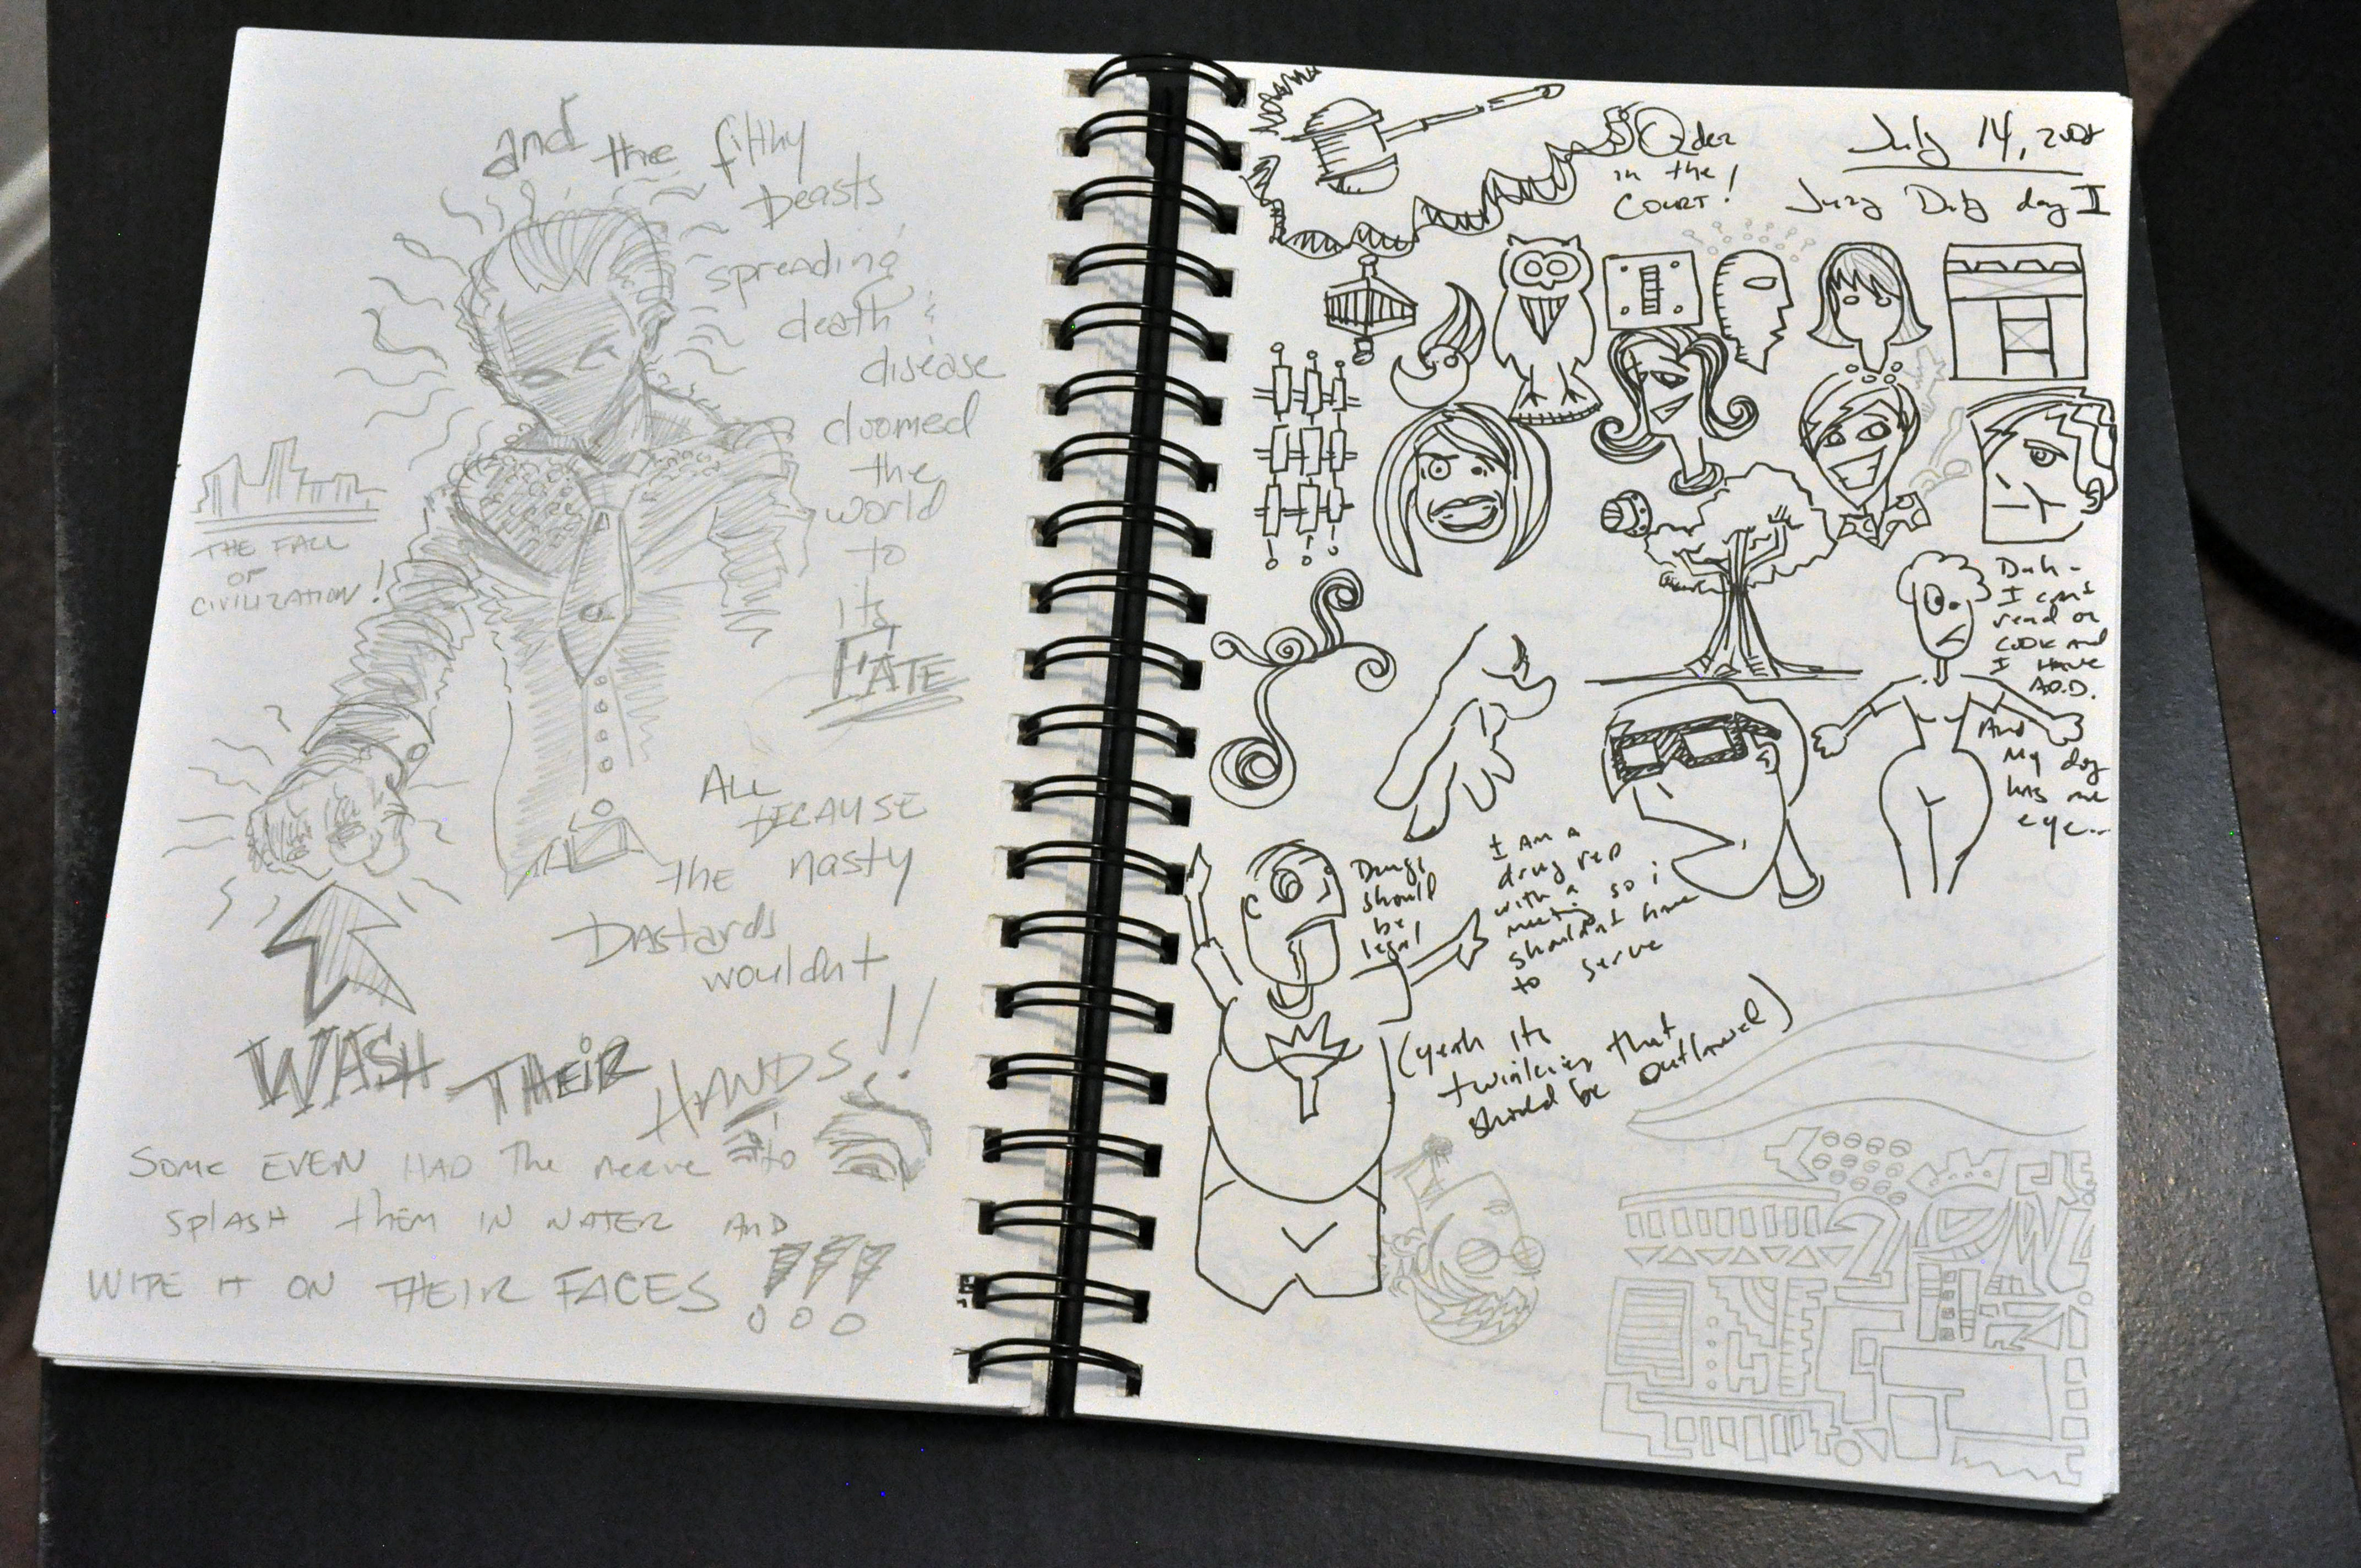 and the filthy
beasts
spreading
death &
disease
doomed
the
world
to
its
FATE
THE FALL
OF
CIVILIZATION!
ALL
BECAUSE
the nasty
Bastards
wouldnt
WASH THEIR HANDS!!
SOME EVEN HAD The nerve to
SPLASH THEM IN WATER AND
WIPE IT ON THEIR FACES!!!
July 14, 2008
Jury Duty day I
Order
in the
COURT!
Duh-
I can't
read or
COOK and
I HAVE
A.D.D.
And
My dog
has one
eye...
Drugs
should
be
legal
I AM A
drug rep
with a
meeting so i
shouldn't have
to serve
(yeah its
twinkies that
should be outlawed)